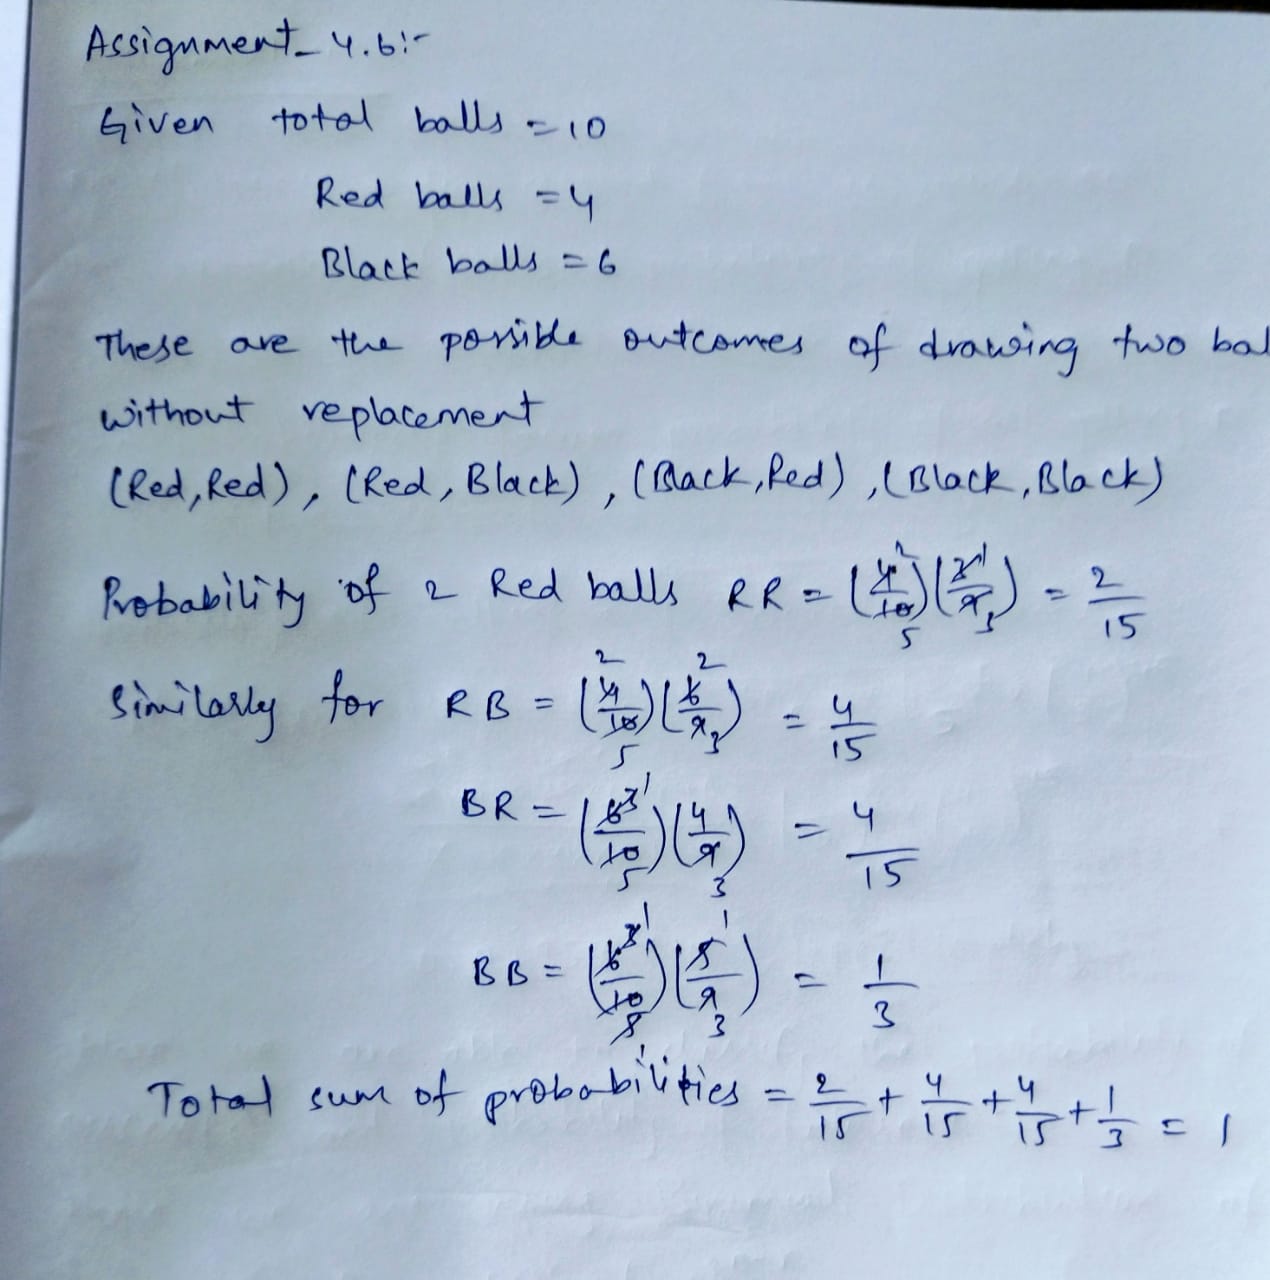 Assignment_ 4.6:-
Given total balls = 10
Red balls = 4
Black balls = 6
These are the possible outcomes of drawing two bal
without replacement
(Red,Red), (Red, Black), (Black,Red), (Black, Black)
Probability of 2 Red balls RR = (4/10)(3/9) = 2/15
Similarly for RB = (4/10)(6/9) = 4/15
BR = (6/10)(4/9) = 4/15
BB = (6/10)(5/9) = 1/3
Total sum of probabilities = 2/15 + 4/15 + 4/15 + 1/3 = 1